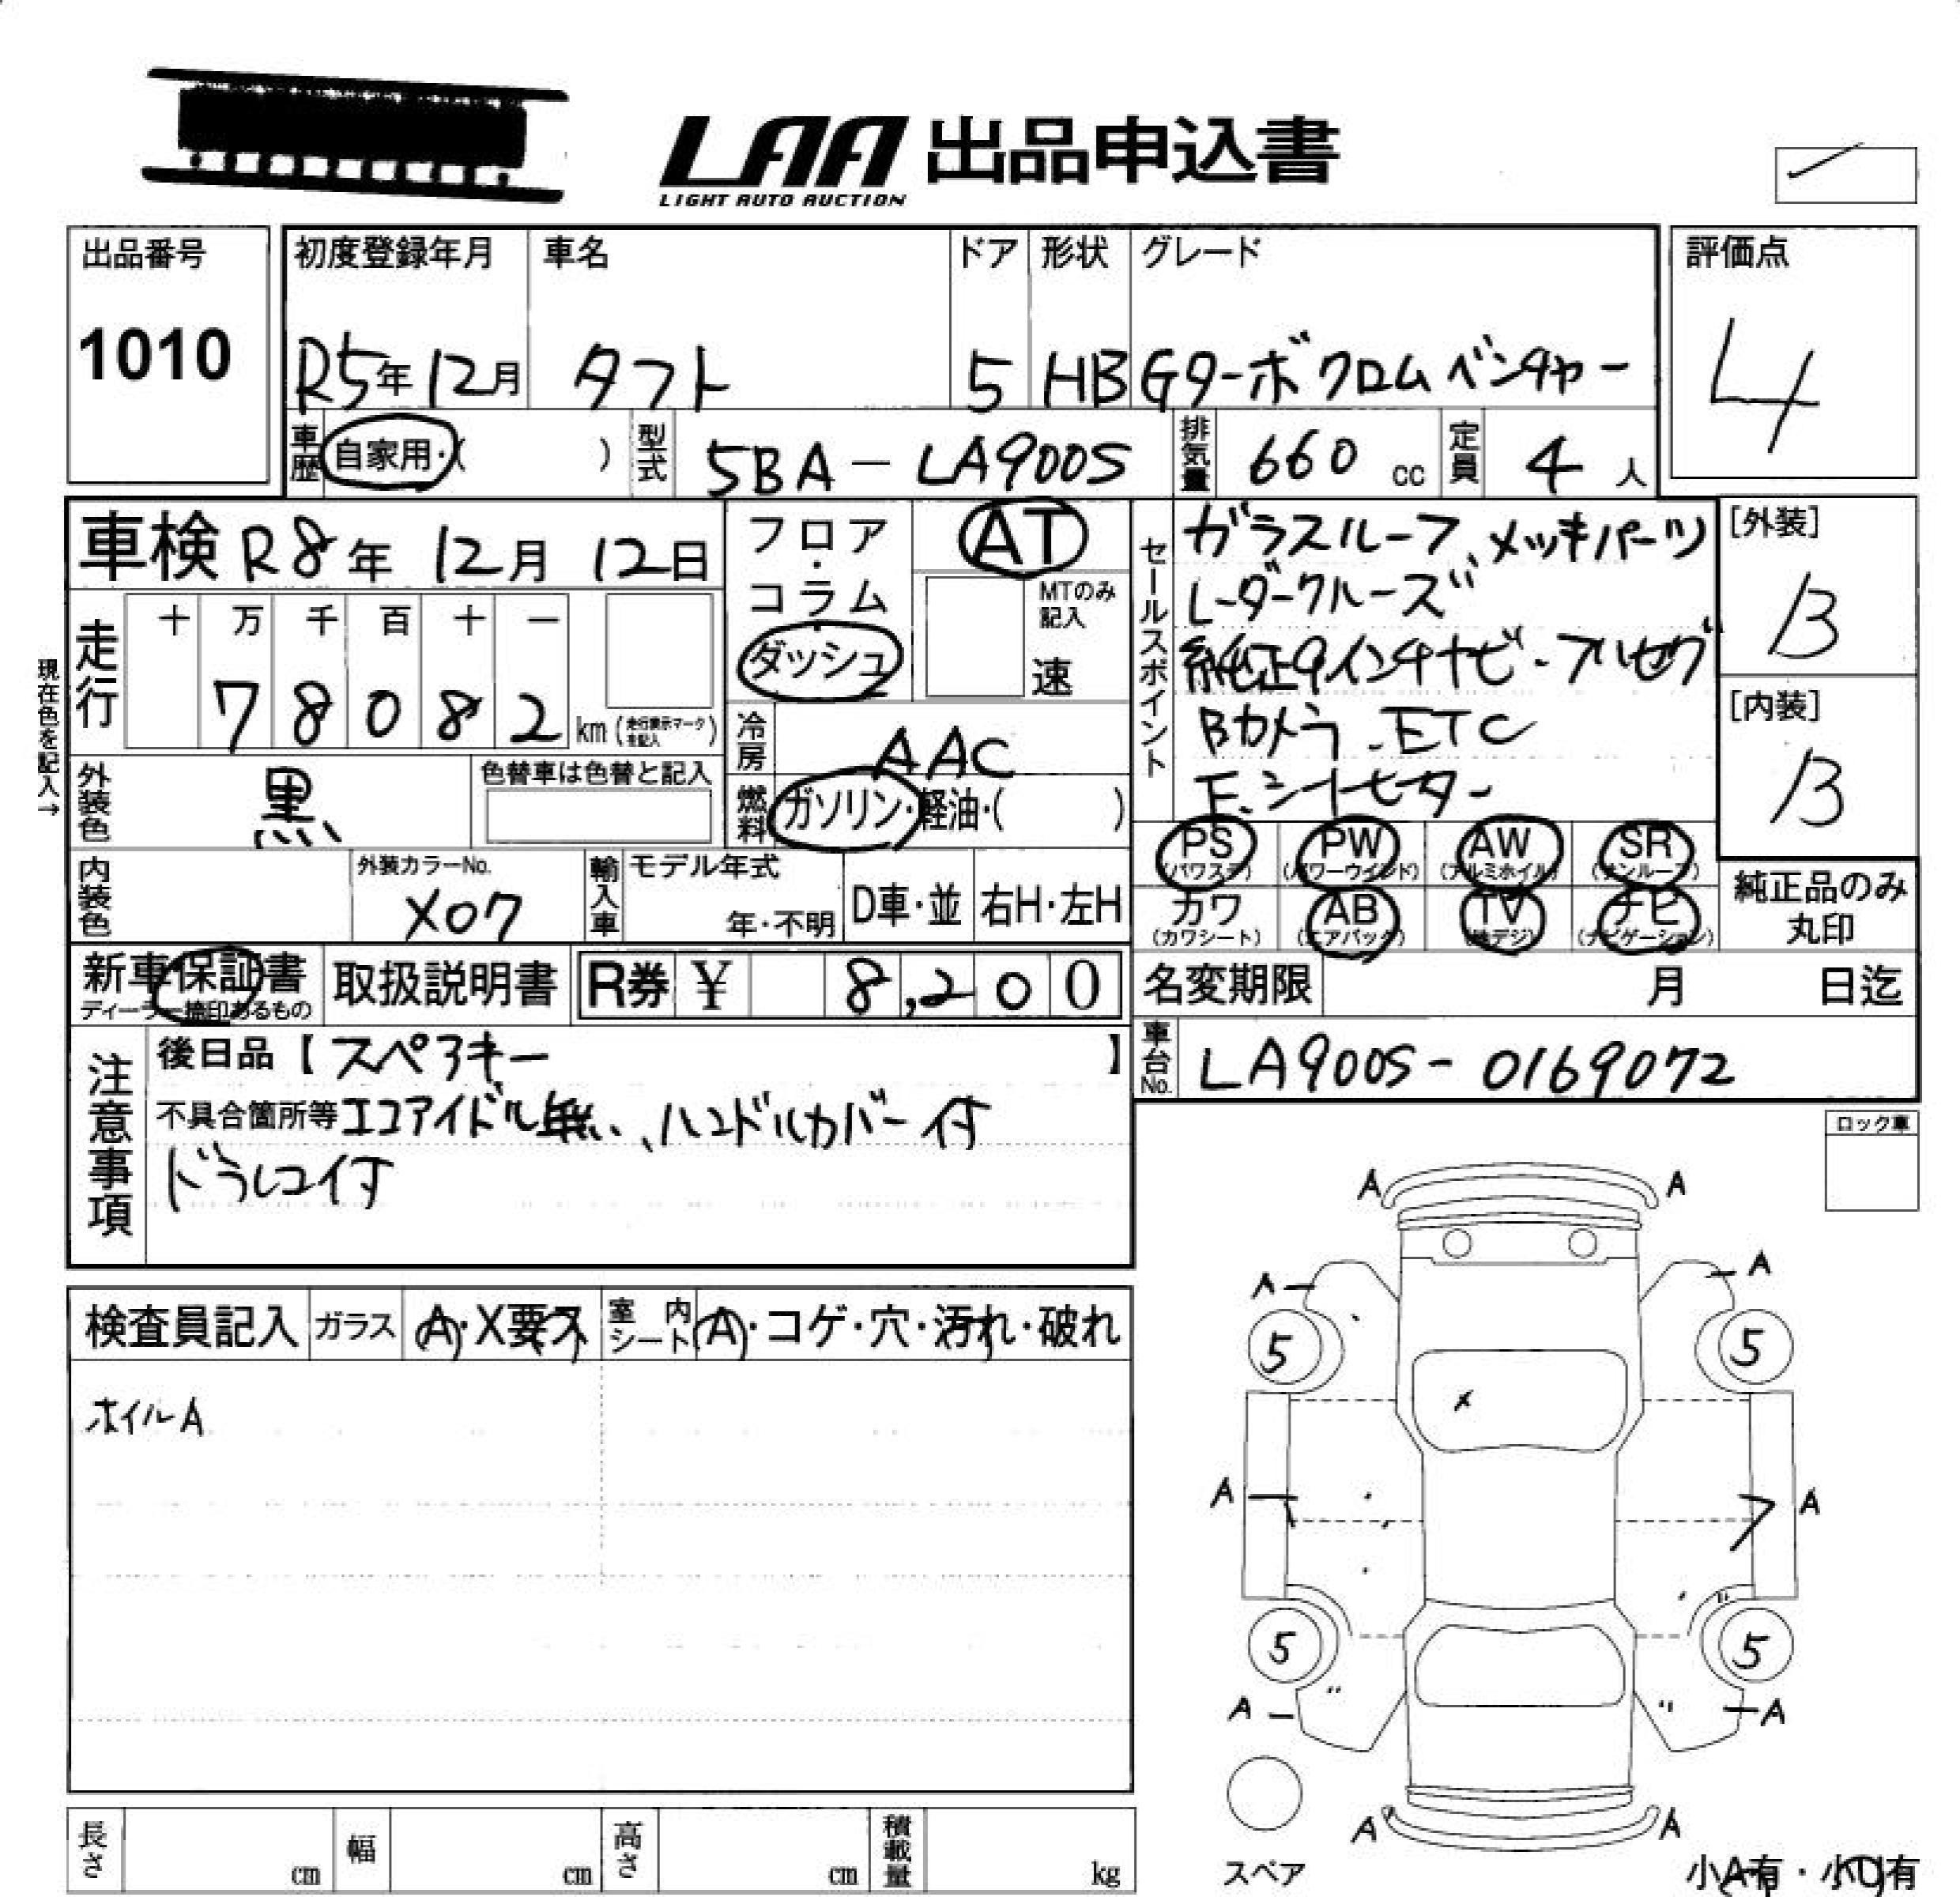 LAA 出品申込書
LIGHT AUTO AUCTION
出品番号
1010
初度登録年月
R5年12月
車名
タフト
ドア
5
形状
HB
グレード
Gターボクロムベンチャー
評価点
4
車歴
自家用・( )
型式
5BA-LA900S
排気量
660 cc
定員
4 人
車検 R8年 12月 12日
フロア・コラム・ダッシュ
AT
MTのみ記入
速
セールスポイント
ガラスルーフ、メッキパーツ
レーダークルーズ
純正9インチナビ・フルセグ
Bカメラ、ETC
F.シートヒーター
[外装]
B
[内装]
B
現在色を記入→
走行
十 万 千 百 十 一
7 8 0 8 2 km (走行表示マークを記入)
冷房
AAC
外装色
黒
色替車は色替と記入
燃料
ガソリン・軽油・( )
PS PW AW SR
(パワステ) (パワーウインド) (アルミホイル) (サンルーフ)
カワ AB TV ナビ
(カワシート) (エアバック) (地デジ) (ナビゲーション)
純正品のみ
丸印
内装色
外装カラーNo.
X07
輸入車
モデル年式
年・不明
D車・並
右H・左H
新車保証書
ディーラー捺印あるもの
取扱説明書
R券 ¥ 8,200
名変期限 月 日迄
車台No.
LA900S-0169072
注意事項
後日品【スペアキー 】
不具合箇所等 エコアイドル無い、ハンドルカバー付
ドラレコ付
ロック車
検査員記入
ガラス
A・X要ス
室内シート
A・コゲ・穴・汚れ・破れ
ホイルA
A A
A A
5 5
x
A A
5 5
A A
A A
スペア
小A有・小U有
長さ cm
幅 cm
高さ cm
積載量 kg